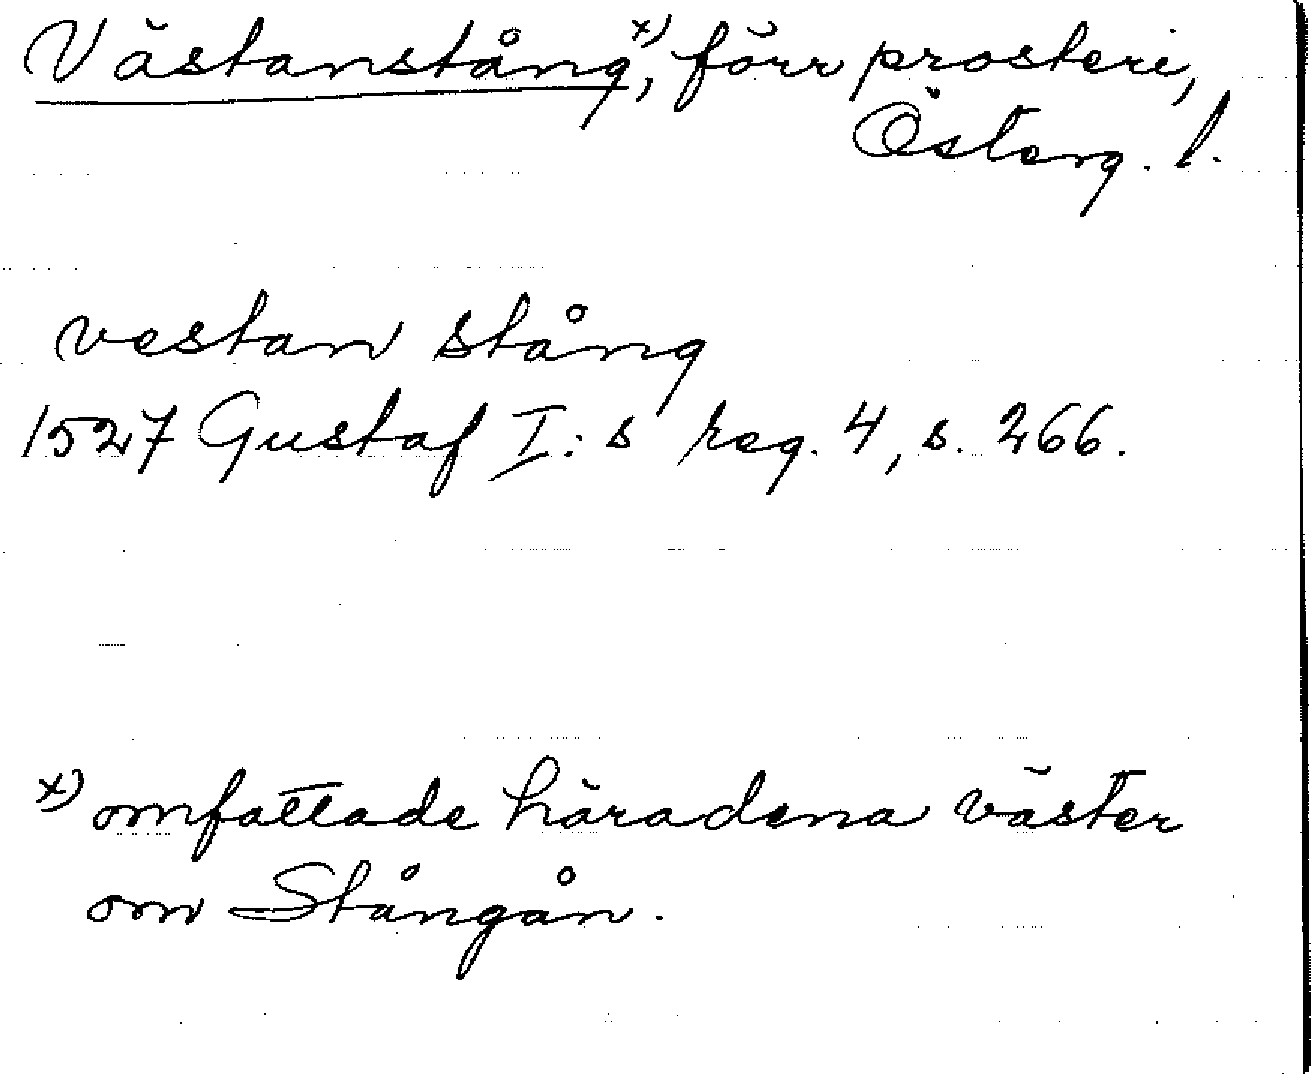 Västanstång, x) förr prosteri,
Österg. l.
vestan stång
1527 Gustaf I:s reg. 4, s. 266.
x) omfattade häradena väster
om Stångån.